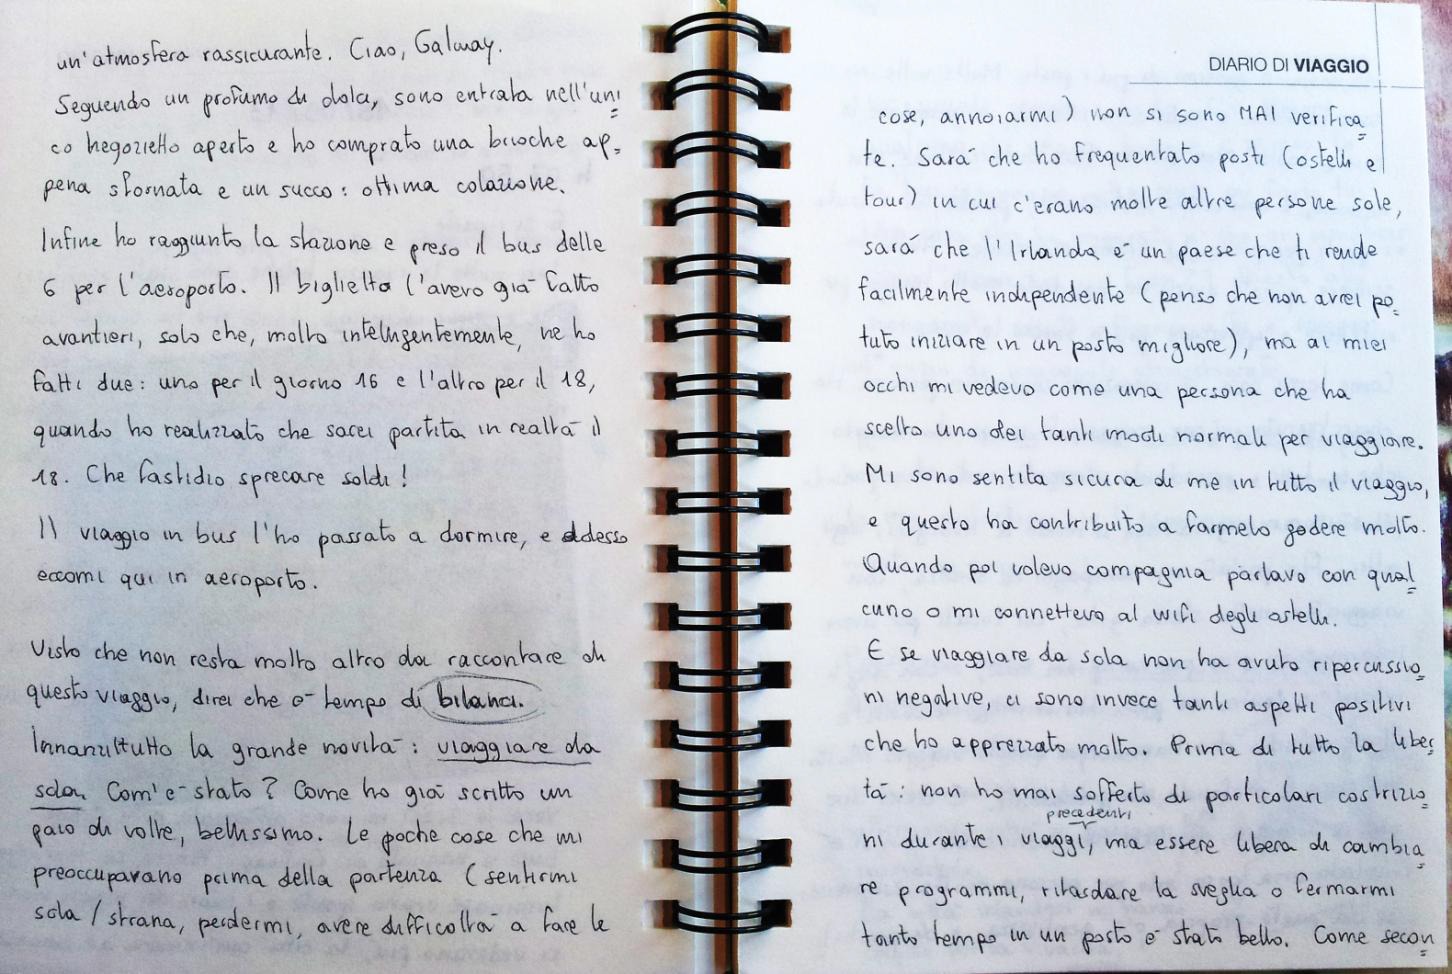 un'atmosfera rassicurante. Ciao, Galway.
Seguendo un profumo di dola, sono entrata nell'uni
co negozietto aperto e ho comprato una brioche ap
pena sfornata e un succo: ottima colazione.
Infine ho raggiunto la stazione e preso il bus delle
6 per l'aeroporto. Il biglietto l'avevo già fatto
avantieri, solo che, molto intelligentemente, ne ho
fatti due: uno per il giorno 16 e l'altro per il 18,
quando ho realizzato che sarei partita in realtà il
18. Che fastidio sprecare soldi!
Il viaggio in bus l'ho passato a dormire, e adesso
eccomi qui in aeroporto.
Visto che non resta molto altro da raccontare di
questo viaggio, direi che è tempo di bilanci.
Innanzitutto la grande novità: viaggiare da
sola. Com'è stato? Come ho già scritto un
paio di volte, bellissimo. Le poche cose che mi
preoccupavano prima della partenza (sentirmi
sola/strana, perdermi, avere difficoltà a fare le
DIARIO DI VIAGGIO
cose, annoiarmi) non si sono MAI verifica
te. Sarà che ho frequentato posti (ostelli e
tour) in cui c'erano molte altre persone sole,
sarà che l'Irlanda è un paese che ti rende
facilmente indipendente (penso che non avrei po
tuto iniziare in un posto migliore), ma ai miei
occhi mi vedevo come una persona che ha
scelto uno dei tanti modi normali per viaggiare.
Mi sono sentita sicura di me in tutto il viaggio,
e questo ha contribuito a farmelo godere molto.
Quando poi volevo compagnia parlavo con qual
cuno o mi connettevo al wifi degli ostelli.
E se viaggiare da sola non ha avuto ripercussio
ni negative, ci sono invece tanti aspetti positivi
che ho apprezzato molto. Prima di tutto la liber
tà: non ho mai sofferto di particolari costrizio
precedenti
ni durante i viaggi, ma essere libera di cambia
re programmi, ritardare la sveglia o fermarmi
tanto tempo in un posto è stato bello. Come secon